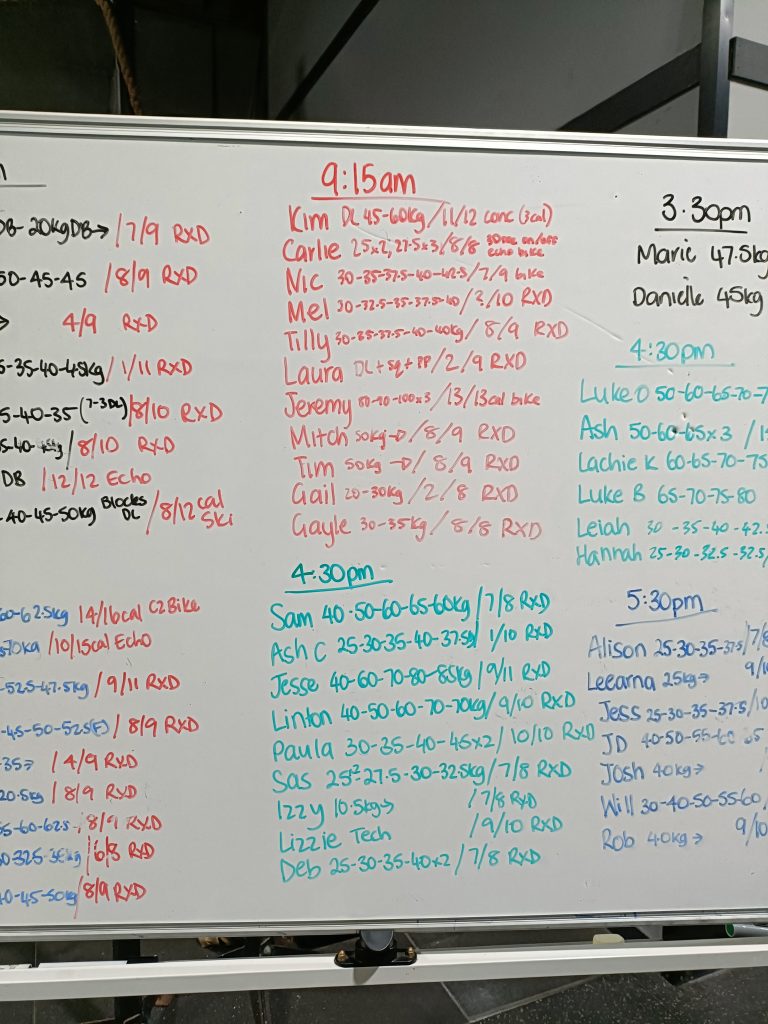 DB- 20kgDB→ /7/9 RXD
50-45-45 /8/9 RXD
→ 4/9 RXD
5-35-40-45kg/ 1/11 RXD
5-40-35 (7-3DL)/8/10 RXD
35-40- /8/10 RXD
DB /12/12 Echo
-40-45-50kg Blocks DL /8/12cal Ski
60-62.5kg 14/16cal C2Bike
-70kg /10/15cal Echo
-52.5-47.5kg / 9/11 RXD
-45-50-52.5(F) / 8/9 RXD
-35→ / 4/9 RXD
20.5kg / 8/9 RXD
55-60-62.5 /8/9 RXD
30-32.5 /6/8 RXD
40-45-50kg/8/9 RXD
9:15am
Kim DL 45-60kg /11/12 conc (3cal)
Carlie 25x2, 27.5x3 /8/8 30sec on/off echo bike
Nic 30-35-37.5-40-42.5 / 7/9 bike
Mel 30-32.5-35-37.5-40 /3/10 RXD
Tilly 30-35-37.5-40-40kg / 8/9 RXD
Laura DL+SQ+PP /2/9 RXD
Jeremy 50-70-100x3 /13/13cal bike
Mitch 50kg→ /8/9 RXD
Tim 50kg→ / 8/9 RXD
Gail 20-30kg /2/8 RXD
Gayle 30-35kg / 8/8 RXD
4:30pm
Sam 40-50-60-65-60kg /7/8 RXD
Ash C 25-30-35-40-37.5kg/ 1/10 RXD
Jesse 40-60-70-80-85kg /9/11 RXD
Linton 40-50-60-70-70kg/ 9/10 RXD
Paula 30-35-40-45x2 / 10/10 RXD
Sas 25x2-27.5-30-32.5kg /7/8 RXD
Izzy 10.5kg→ /7/8 RXD
Lizzie Tech /9/10 RXD
Deb 25-30-35-40x2 / 7/8 RXD
3.30pm
Marie 47.5kg
Danielle 45kg
4:30pm
Luke O 50-60-65-70-7
Ash 50-60-65x3 / 1
Lachie K 60-65-70-75
Luke B 65-70-75-80
Leiah 30-35-40-42.5
Hannah 25-30-32.5-32.5/
5:30pm
Alison 25-30-35-37.5/7/8
Leearna 25kg→ 9/10
Jess 25-30-35-37.5/10
JD 40-50-55-60 65
Josh 40kg→ /
Will 30-40-50-55-60/
Rob 40kg→ 9/10